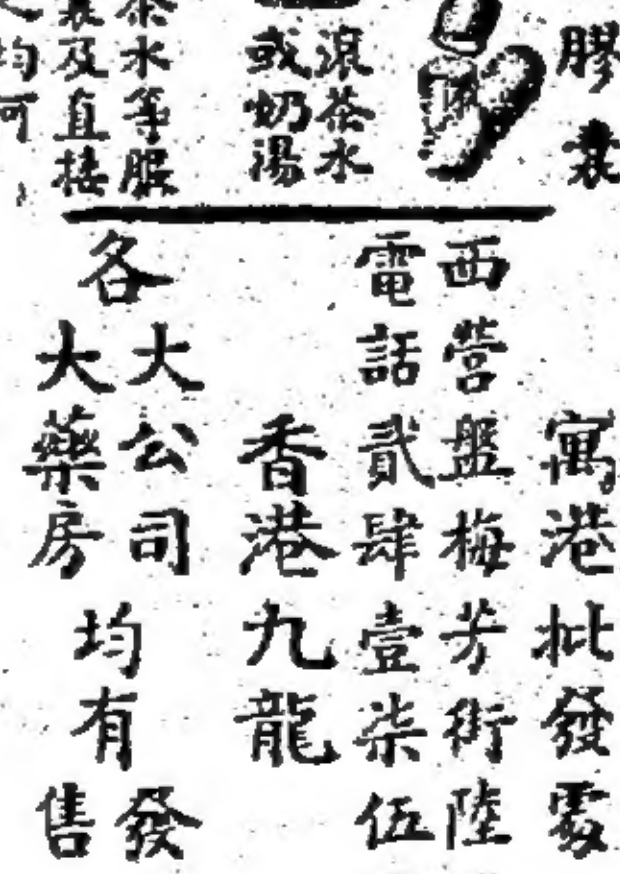 膠囊
滾茶水
或奶湯
茶水等服
裝及直接
均可
寓港批發處
西營盤梅芳街陸
電話貳肆壹柒伍
香港九龍
各
大公司
大藥房
均有
發售